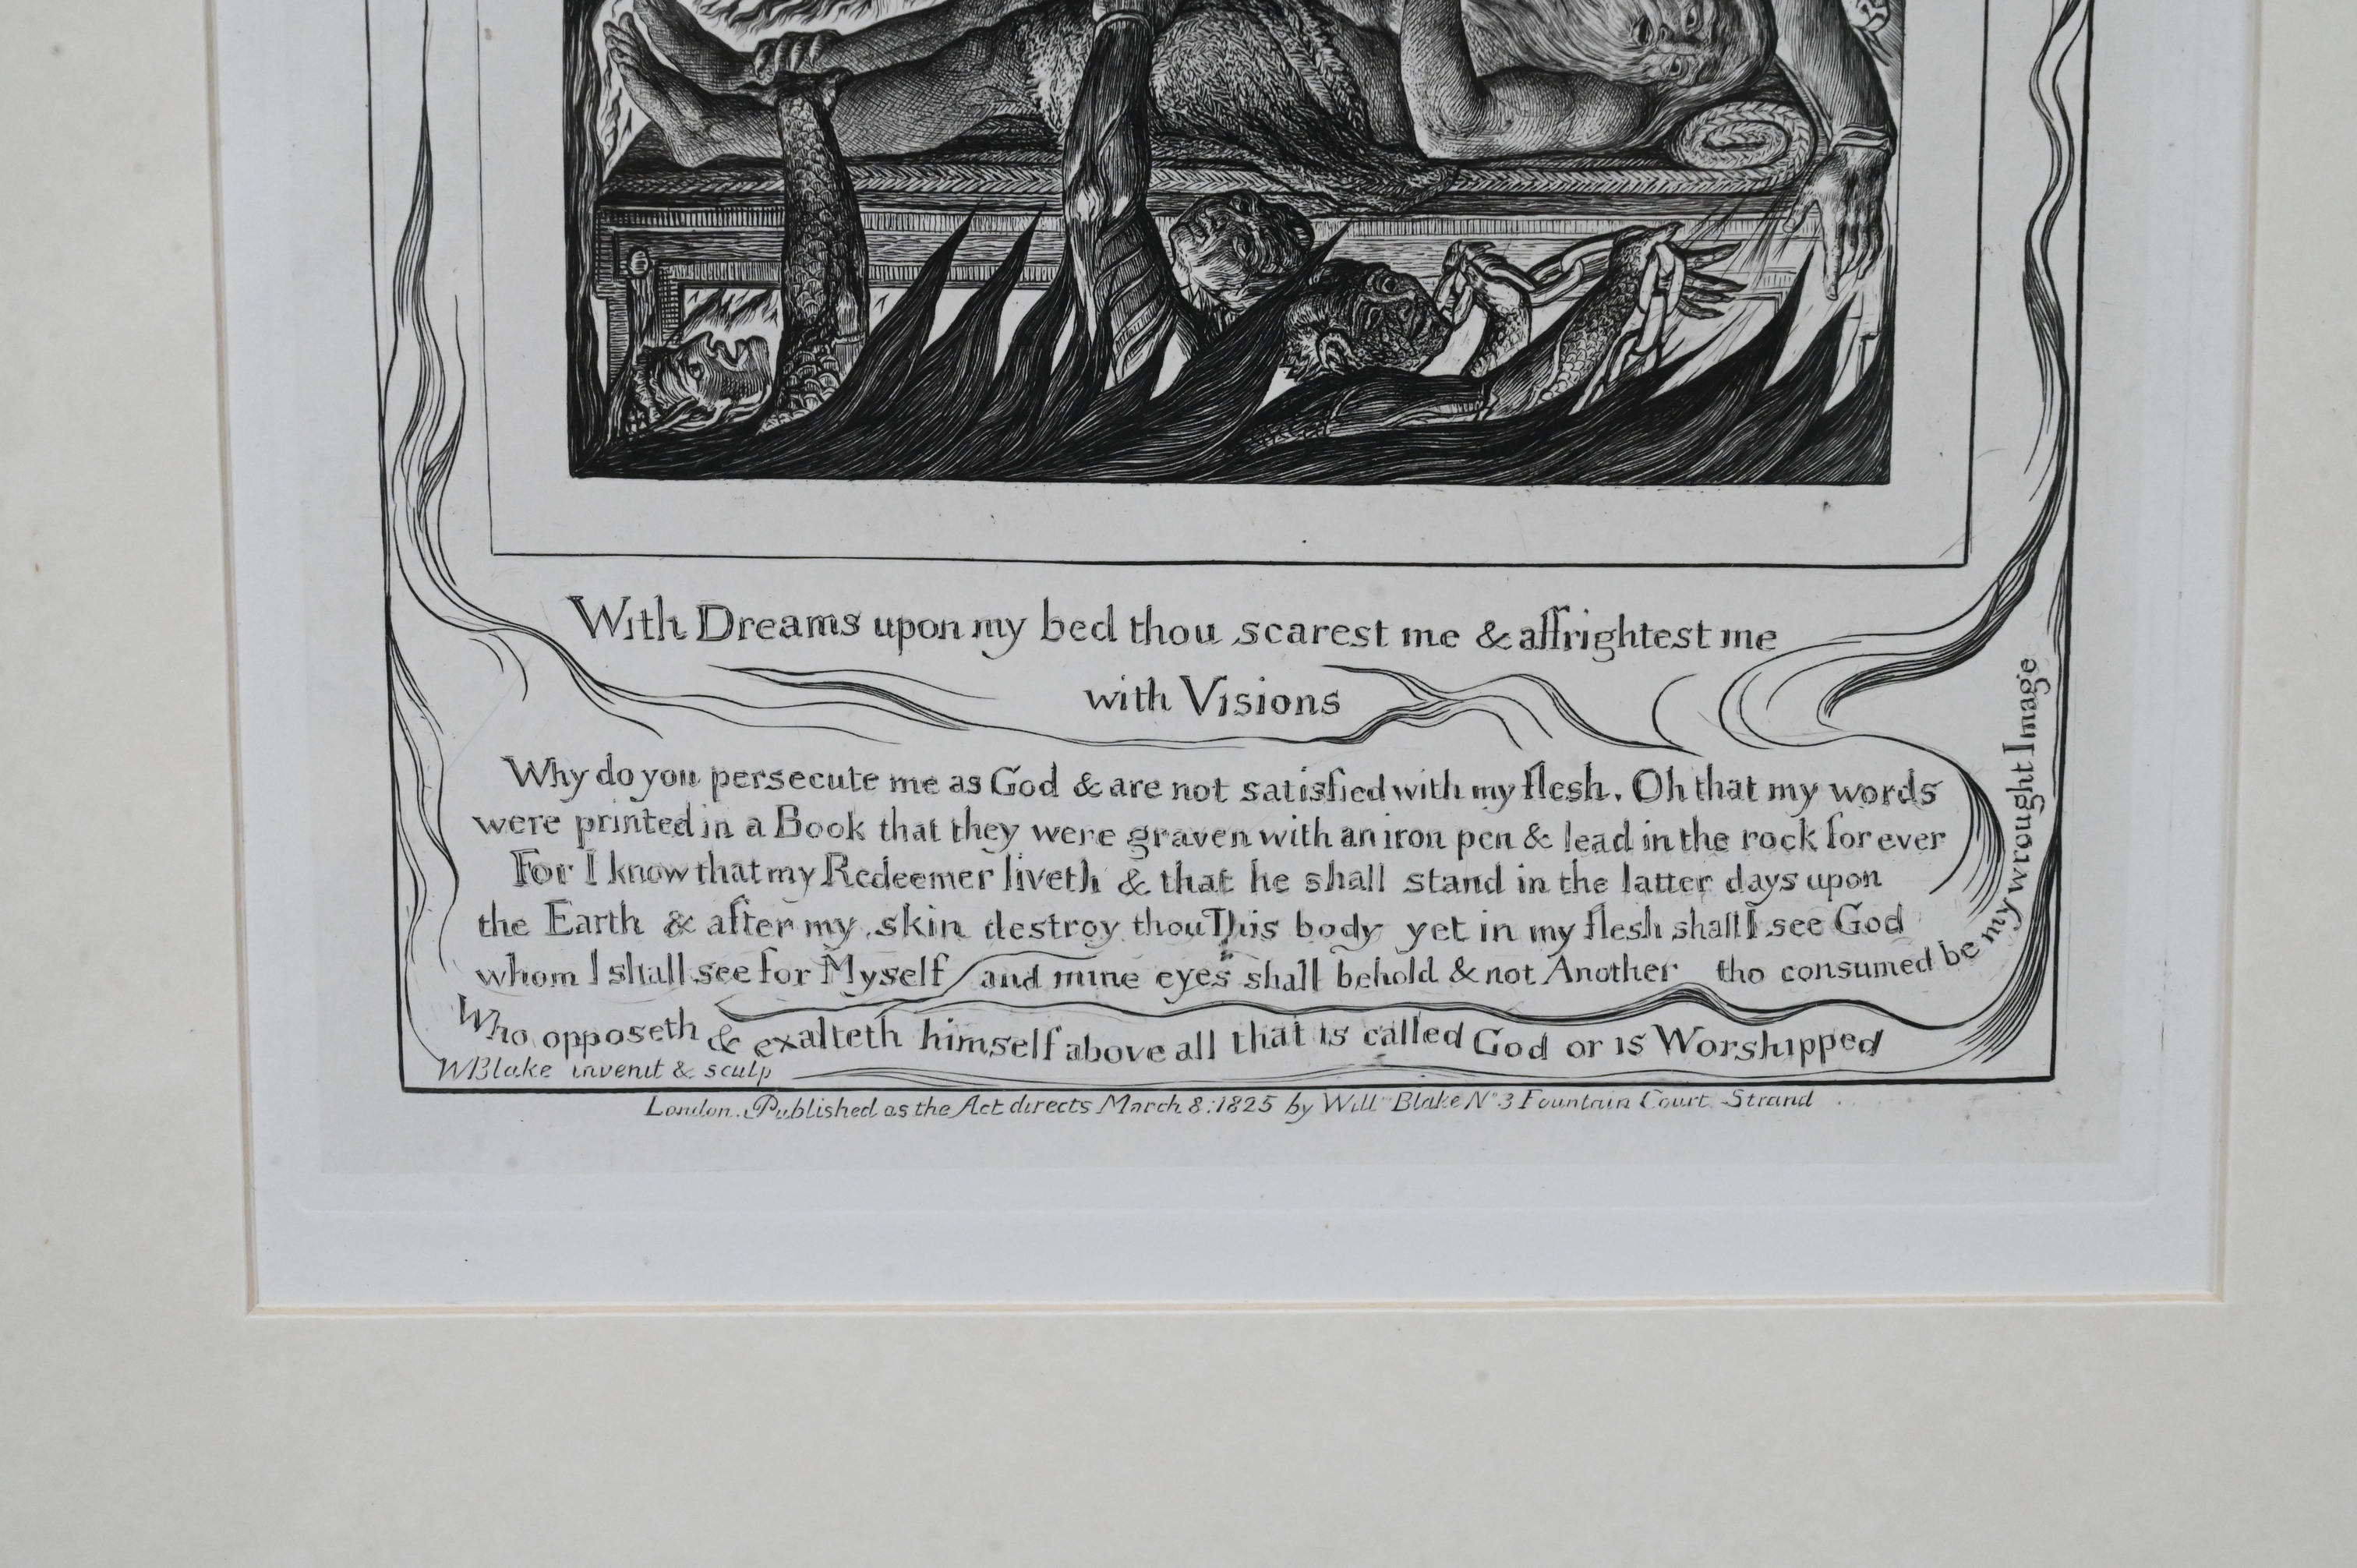 With Dreams upon my bed thou scarest me & affrightest me
with Visions
Why do you persecute me as God & are not satisfied with my flesh. Oh that my words
were printed in a Book that they were graven with an iron pen & lead in the rock for ever
For I know that my Redeemer liveth & that he shall stand in the latter days upon
the Earth & after my skin destroy thou This body yet in my flesh shall I see God
whom I shall see for Myself and mine eyes shall behold & not Another tho consumed be my wrought Image
Who opposeth & exalteth himself above all that is called God or is Worshipped
WBlake invenit & sculp
London. Published as the Act directs March 8: 1825 by Will Blake No 3 Fountain Court Strand